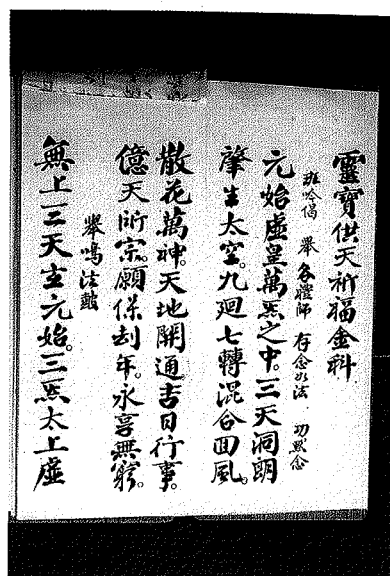 靈寶供天祈福金科
班唅偈 舉各禮師 存念如法 功默念
元始虛皇萬炁之中。三天洞朗
肇生太空。九廻七轉混合回風。
散花萬神。天地開通吉日行事。
億天所宗。願保劫年。永享無窮。
舉鳴法鼓
無上三天玄元始。三炁太上虛